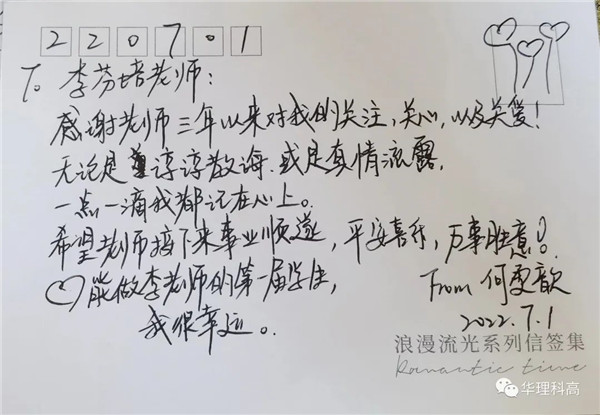 220701
To 李芬培老师：
感谢老师三年以来对我的关注，关心，以及关爱！
无论是谆谆教诲，或是真情流露，
一点一滴我都记在心上。
希望老师接下来事业顺遂，平安喜乐，万事胜意！
能做李老师的第一届学生，
我很幸运。
From 何雯歆
2022.7.1
浪漫流光系列信签集
Romantic time
华理科高